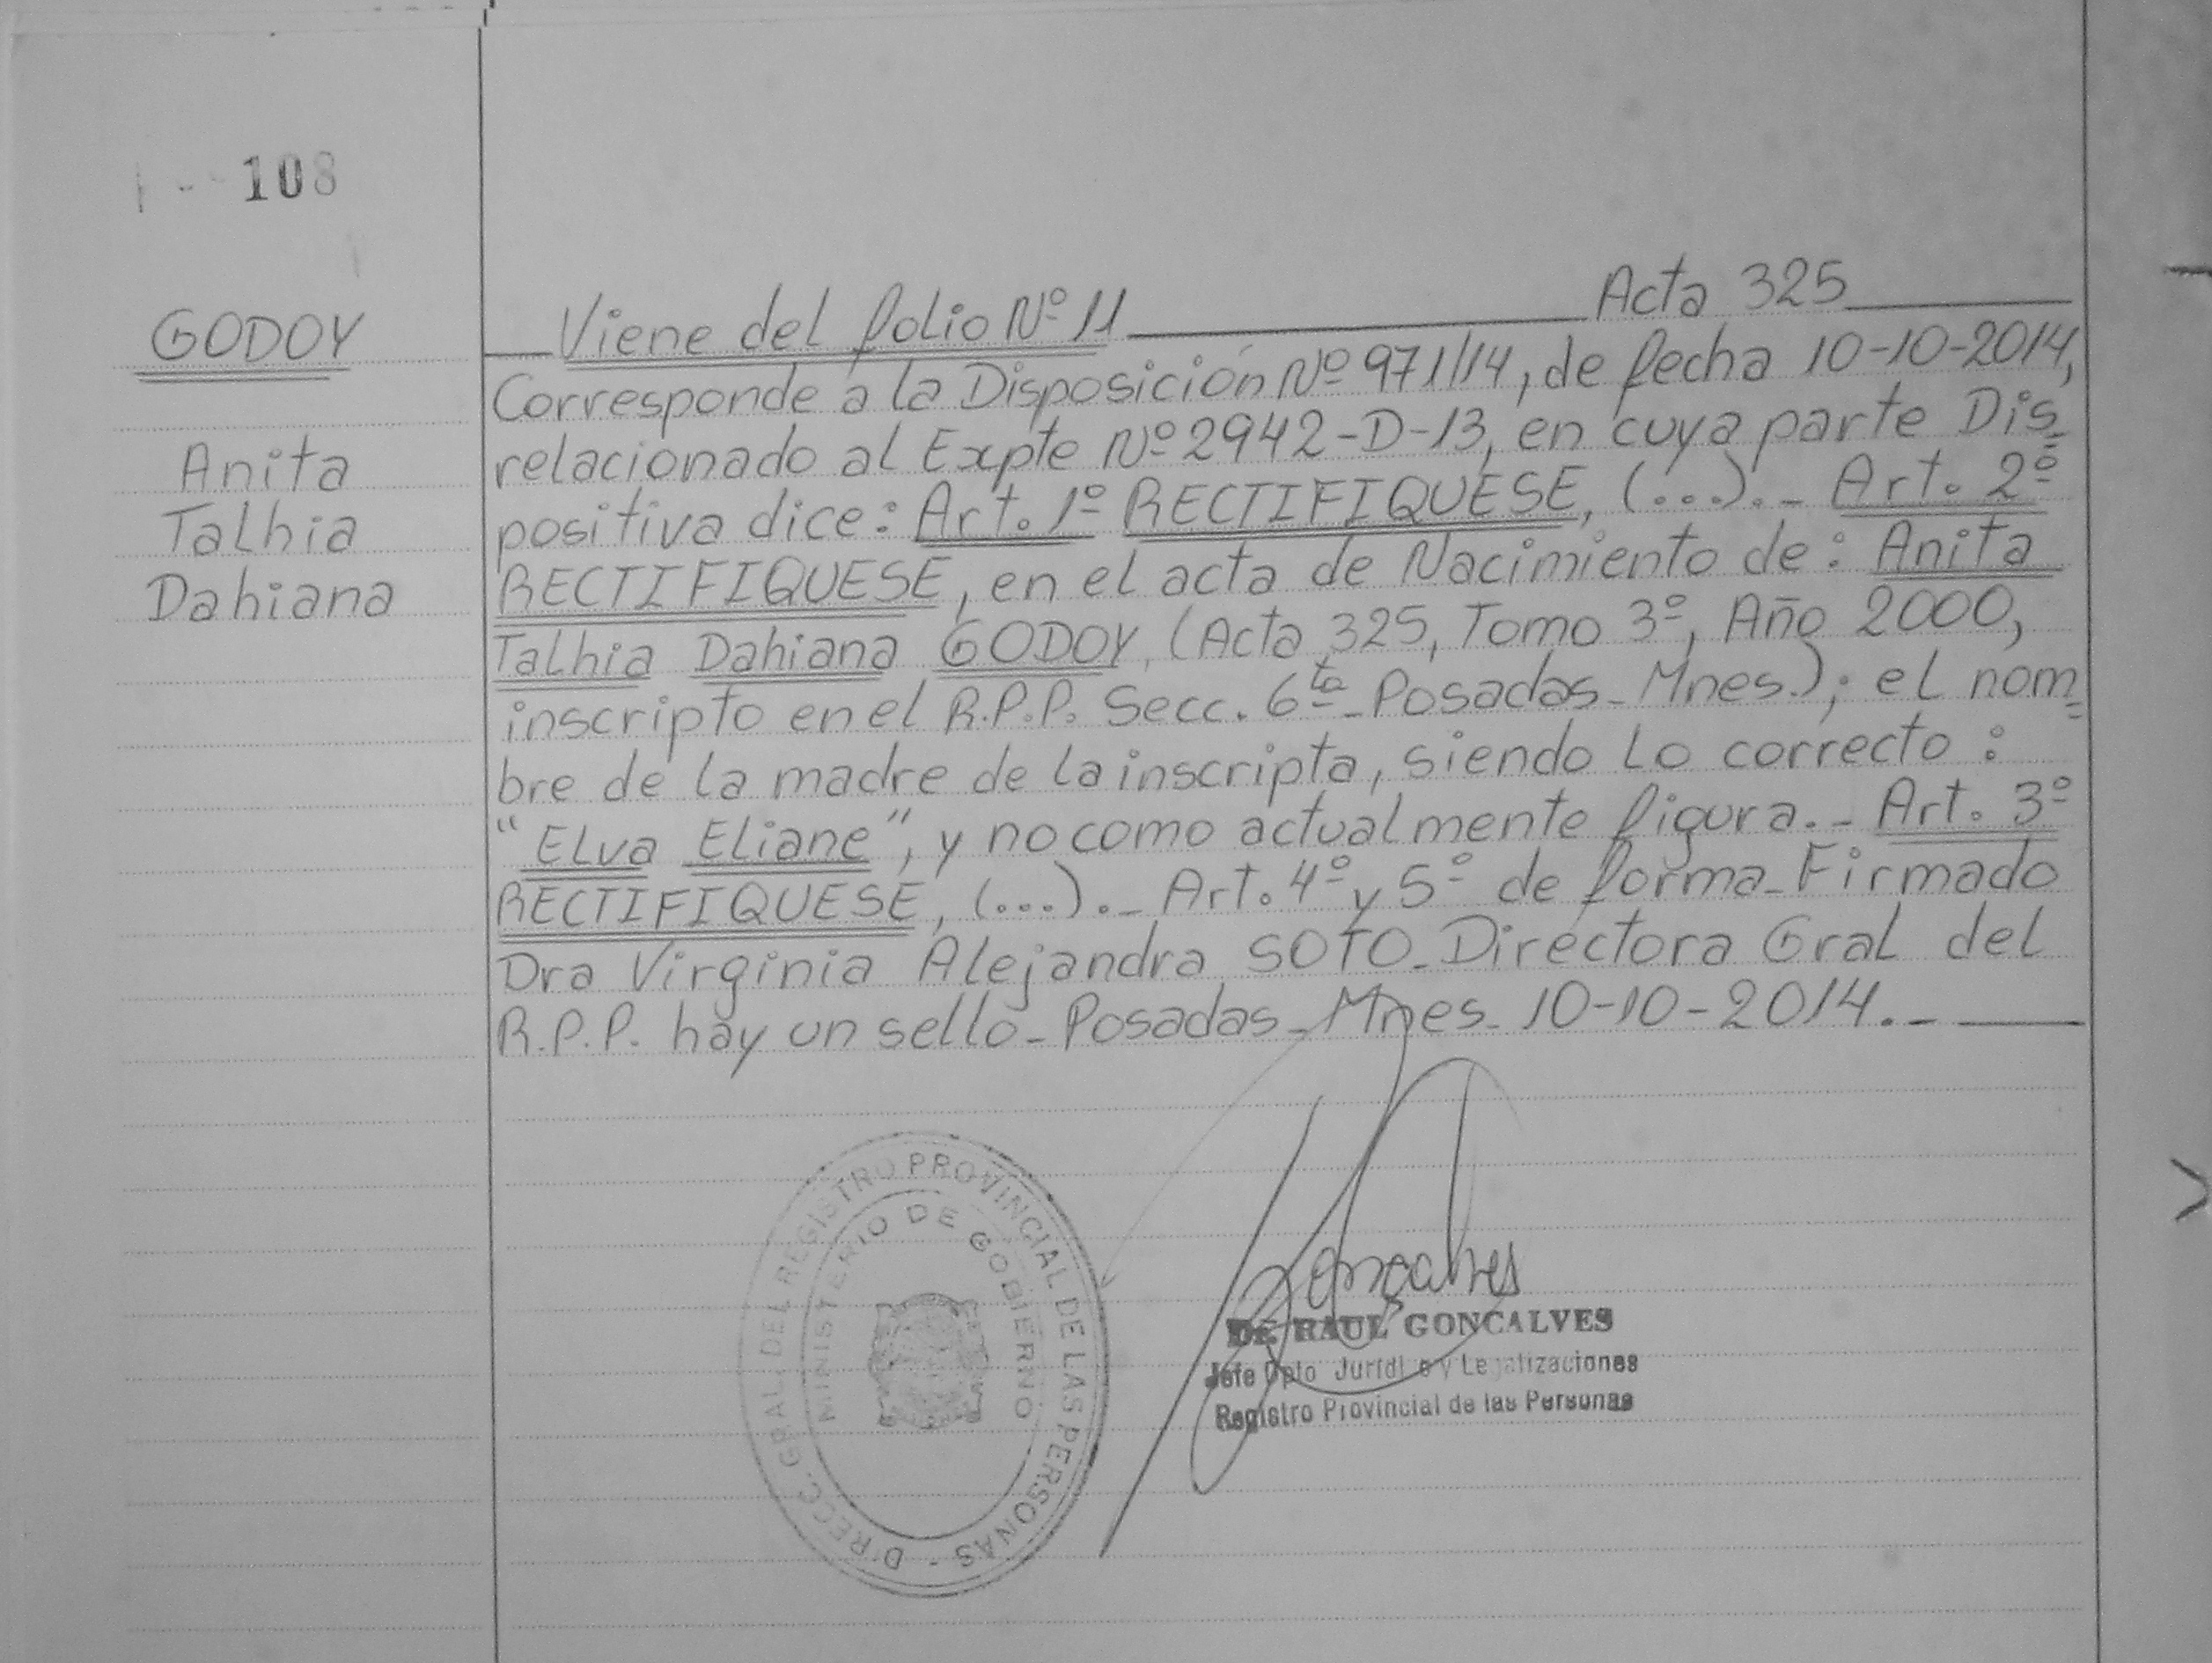 108
GODOY
Anita
Talhia
Dahiana
Viene del folio Nº 11 Acta 325
Corresponde a la Disposición Nº 971/14, de fecha 10-10-2014,
relacionado al Expte Nº 2942-D-13, en cuya parte Dis=
positiva dice: Art. 1º RECTIFIQUESE, (...).- Art. 2º
RECTIFIQUESE, en el acta de Nacimiento de: Anita
Talhia Dahiana GODOY, (Acta 325, Tomo 3º, Año 2000,
inscripto en el R.P.P. Secc. 6ta - Posadas - Mnes.); el nom=
bre de la madre de la inscripta, siendo lo correcto:
"Elva Eliane", y no como actualmente figura.- Art. 3º
RECTIFIQUESE, (...).- Art. 4º y 5º de forma - Firmado
Dra Virginia Alejandra SOTO - Directora Gral del
R.P.P. hay un sello - Posadas - Mnes - 10-10-2014.-
DIRECC. GRAL. DEL REGISTRO PROVINCIAL DE LAS PERSONAS -
MINISTERIO DE GOBIERNO
Gonçalves
Dr. RAUL GONCALVES
Jefe Dpto Jurídico y Legalizaciones
Registro Provincial de las Personas